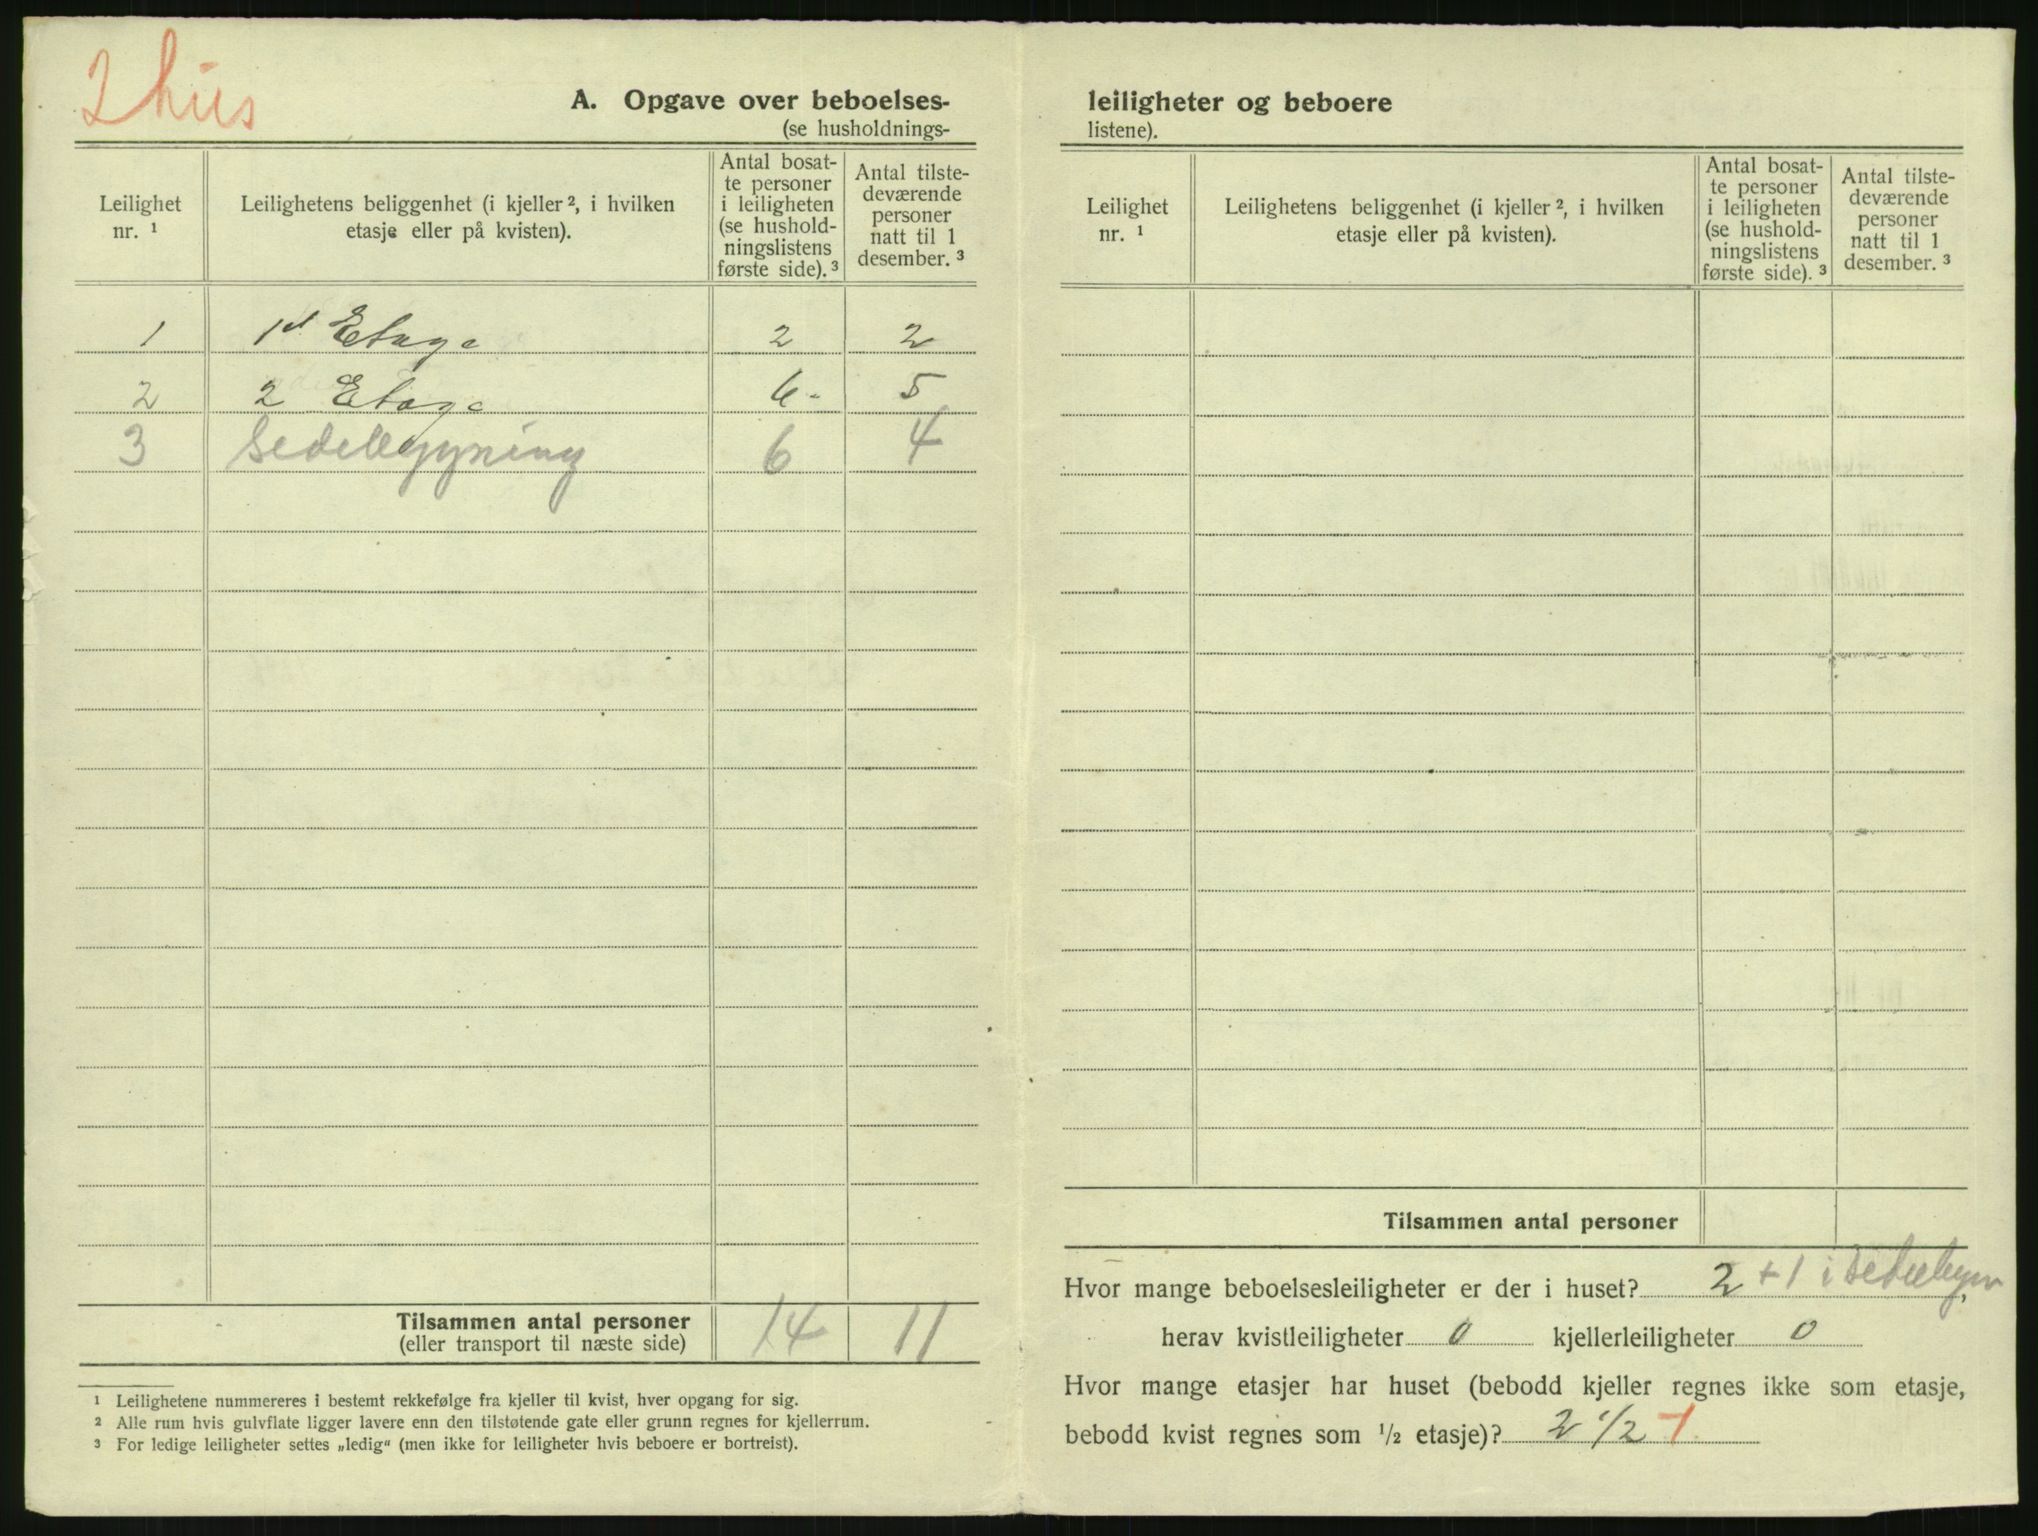 2 hus
A. Opgave over beboelses-
(se husholdnings-
Leilighet nr. ¹
Leilighetens beliggenhet (i kjeller ², i hvilken etasje eller på kvisten).
Antal bosat-
te personer
i leiligheten
(se hushold-
ningslistens
første side). ³
Antal tilste-
deværende
personer
natt til 1
desember. ³
1 1ste Etage 2 2
2 2 Etage 6 - 5
3 Sidebygning 6 4
Tilsammen antal personer 14 11
(eller transport til næste side)
¹ Leilighetene nummereres i bestemt rekkefølge fra kjeller til kvist, hver opgang for sig.
² Alle rum hvis gulvflate ligger lavere enn den tilstøtende gate eller grunn regnes for kjellerrum.
³ For ledige leiligheter settes „ledig“ (men ikke for leiligheter hvis beboere er bortreist).
leiligheter og beboere
listene).
Leilighet nr. ¹
Leilighetens beliggenhet (i kjeller ², i hvilken etasje eller på kvisten).
Antal bosat-
te personer
i leiligheten
(se hushold-
ningslistens
første side). ³
Antal tilste-
deværende
personer
natt til 1
desember. ³
Tilsammen antal personer
Hvor mange beboelsesleiligheter er der i huset? 2 + 1 i
herav kvistleiligheter 0 kjellerleiligheter 0
Hvor mange etasjer har huset (bebodd kjeller regnes ikke som etasje,
bebodd kvist regnes som ½ etasje)? 2 1/2 -1